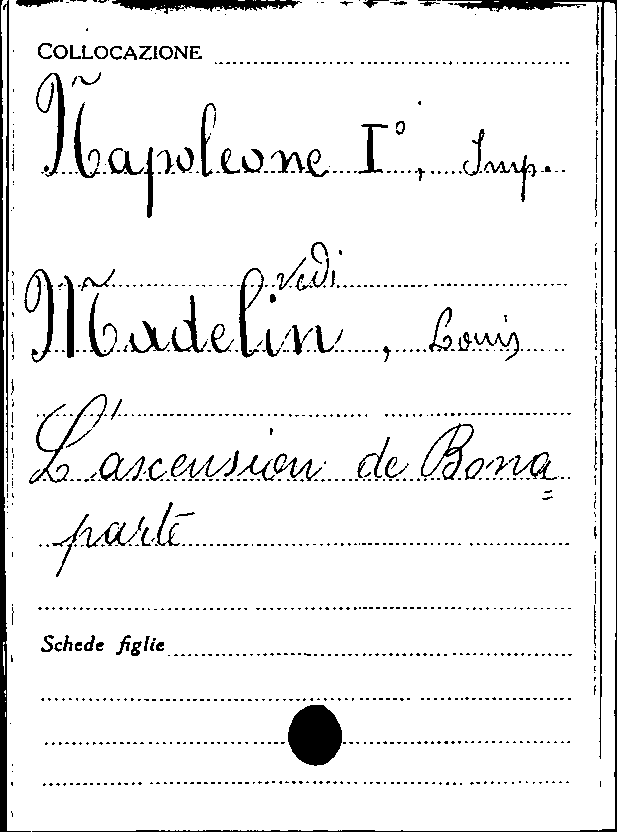 COLLOCAZIONE
Napoleone I°, Imp.
vedi
Madelin, Louis
L'ascension de Bona=
parte
Schede figlie